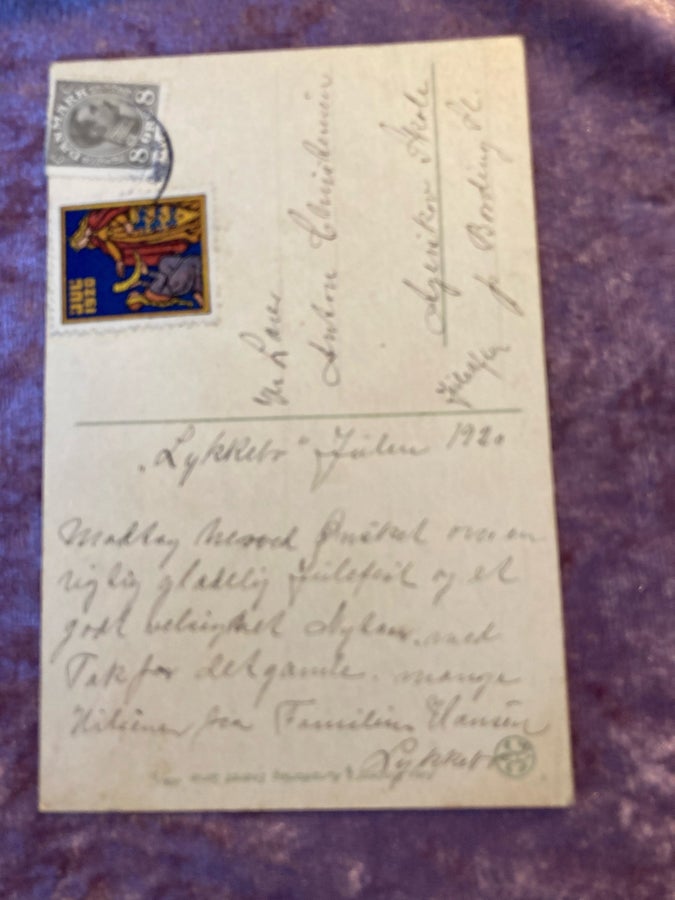 DANMARK
8 ØRE 8
JUL
1920
Hr Lærer
Anton Christensen
Skole
pr Bording St.
"Lykkebo" Julen 1920
Modtag herved Ønsket om en
rigtig glædelig Julefest og et
godt velsignet Nytaar, med
Tak for det gamle. mange
Hilsener fra Familien Hansen
Lykkebo